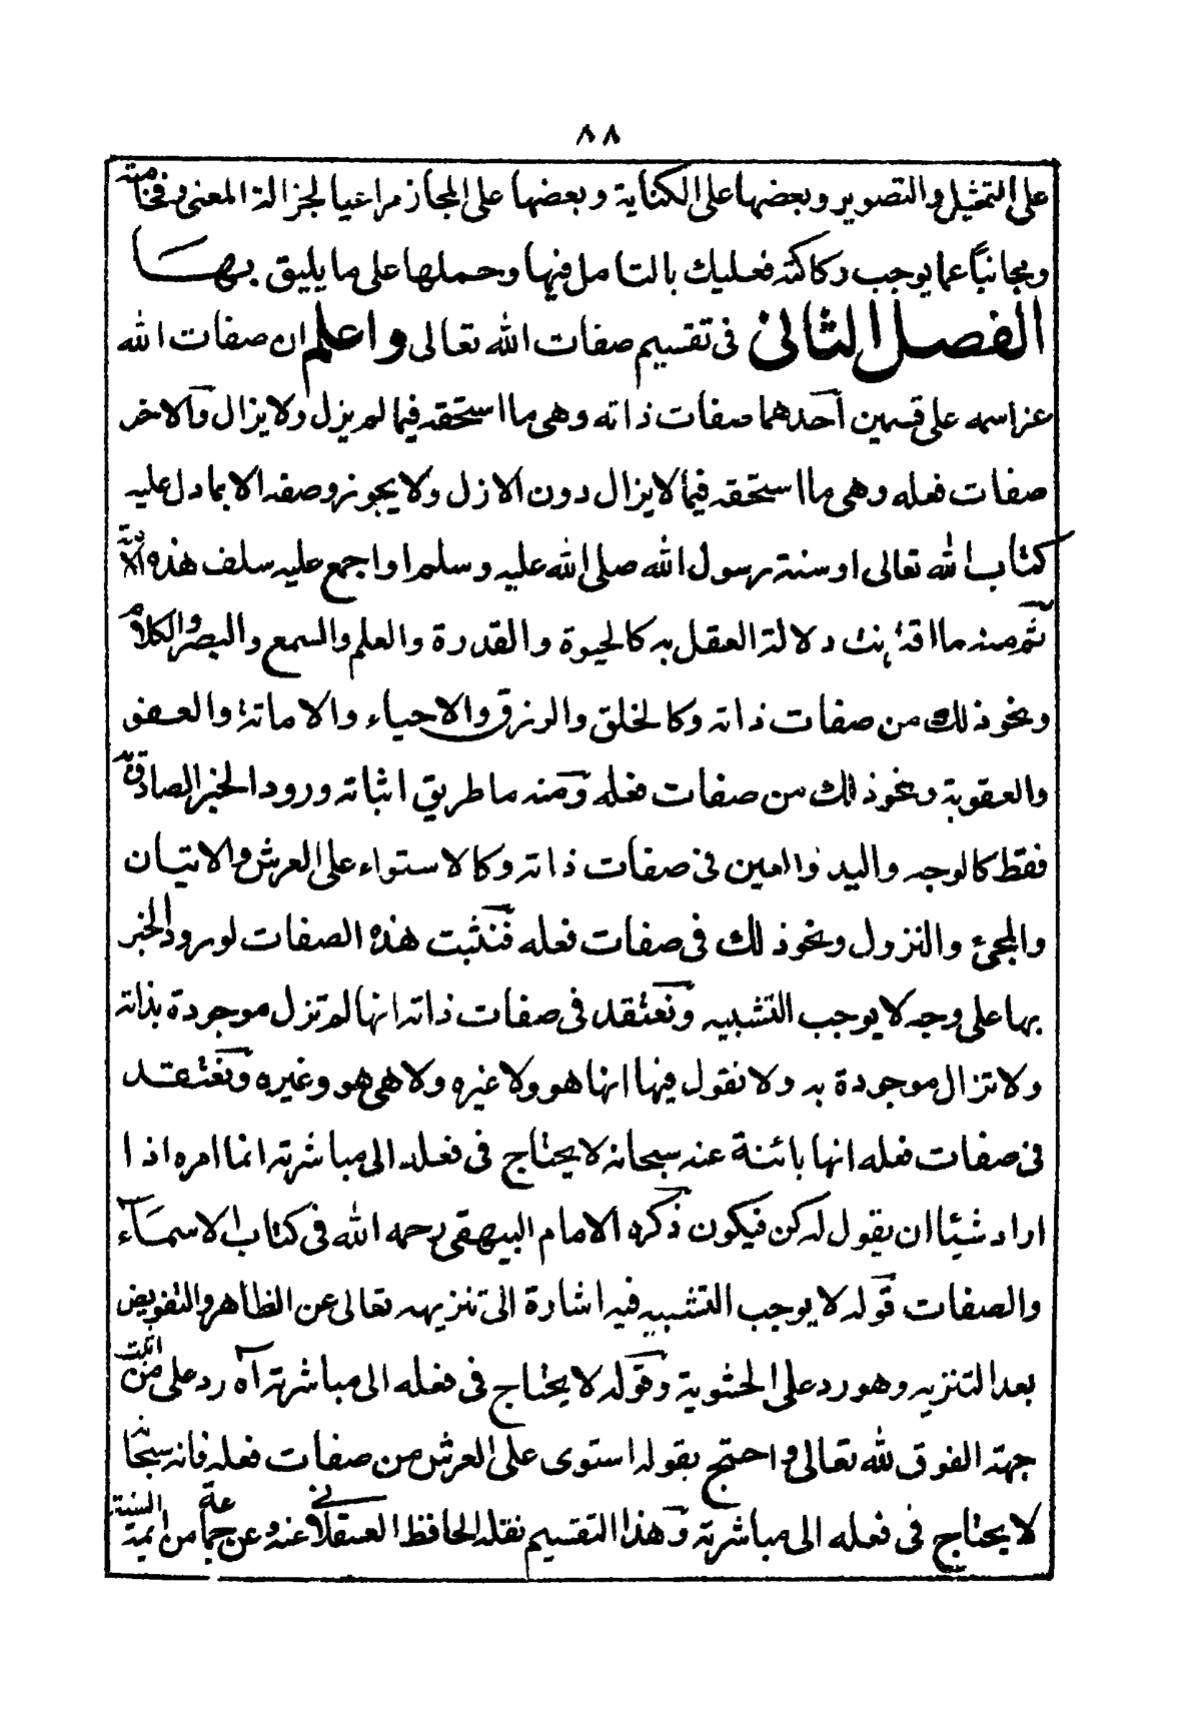 ٨٨
على التمثيل والتصوير وبعضها على الكناية وبعضها على المجاز مراعيا لجزالة المعنى وفخامته
ومجانباً عما يوجب ركاكته فعليك بالتامل فيها وحملها على ما يليق بهـا
الفصل الثانى فى تقسيم صفات الله تعالى واعلم ان صفات الله
عزاسمه على قسمين أحدهما صفات ذاته وهى ما استحقه فيما لم يزل ولا يزال والاخر
صفات فعله وهى ما استحقه فيما لا يزال دون الازل ولا يجوز وصفه الا بما دل عليه
كتاب الله تعالى او سنة رسول الله صلى الله عليه وسلم او اجمع عليه سلف هذه الامة
ثم منه ما اقترنت دلالة العقل به كالحيوة والقدرة والعلم والسمع والبصر والكلام
ونحو ذلك من صفات ذاته وكالخلق والرزق والاحياء والاماتة والعـفو
والعقوبة ونحو ذلك من صفات فعله ومنه ما طريق اثباته ورود الخبر الصادق به
فقط كالوجه واليد والعين فى صفات ذاته وكالاستواء على العرش والاتيـان
والمجئ والنزول ونحو ذلك فى صفات فعله فنثبت هذه الصفات لورود الخبر
بها على وجه لا يوجب التشبيه ونعتقد فى صفات ذاته انها لم تزل موجودة بذاته
ولا تزال موجودة به ولا نقول فيها انها هو ولا غيره ولا هى هو وغيره ونعتقـد
فى صفات فعله انها بائنة عنه سبحانه لا يحتاج فى فعله الى مباشرته انما امره اذا
اراد شيئا ان يقول له كن فيكون ذكره الامام البيهقى رحمه الله فى كتاب الاسمـاء
والصفات قوله لا يوجب التشبيه فيه اشارة الى تنزيهه تعالى عن الظاهر والتفويض
بعد التنزيه وهو رد على الحشوية وقوله لا يحتاج فى فعله الى مباشرته آه رد على من اثبت
جهة الفوق لله تعالى واحتج بقوله استوى على العرش من صفات فعله فانه سبحانه
لا يحتاج فى فعله الى مباشرته وهذا التقسيم نقله الحافظ العسقلانى عنه وعن جماعة من ائمة السنة